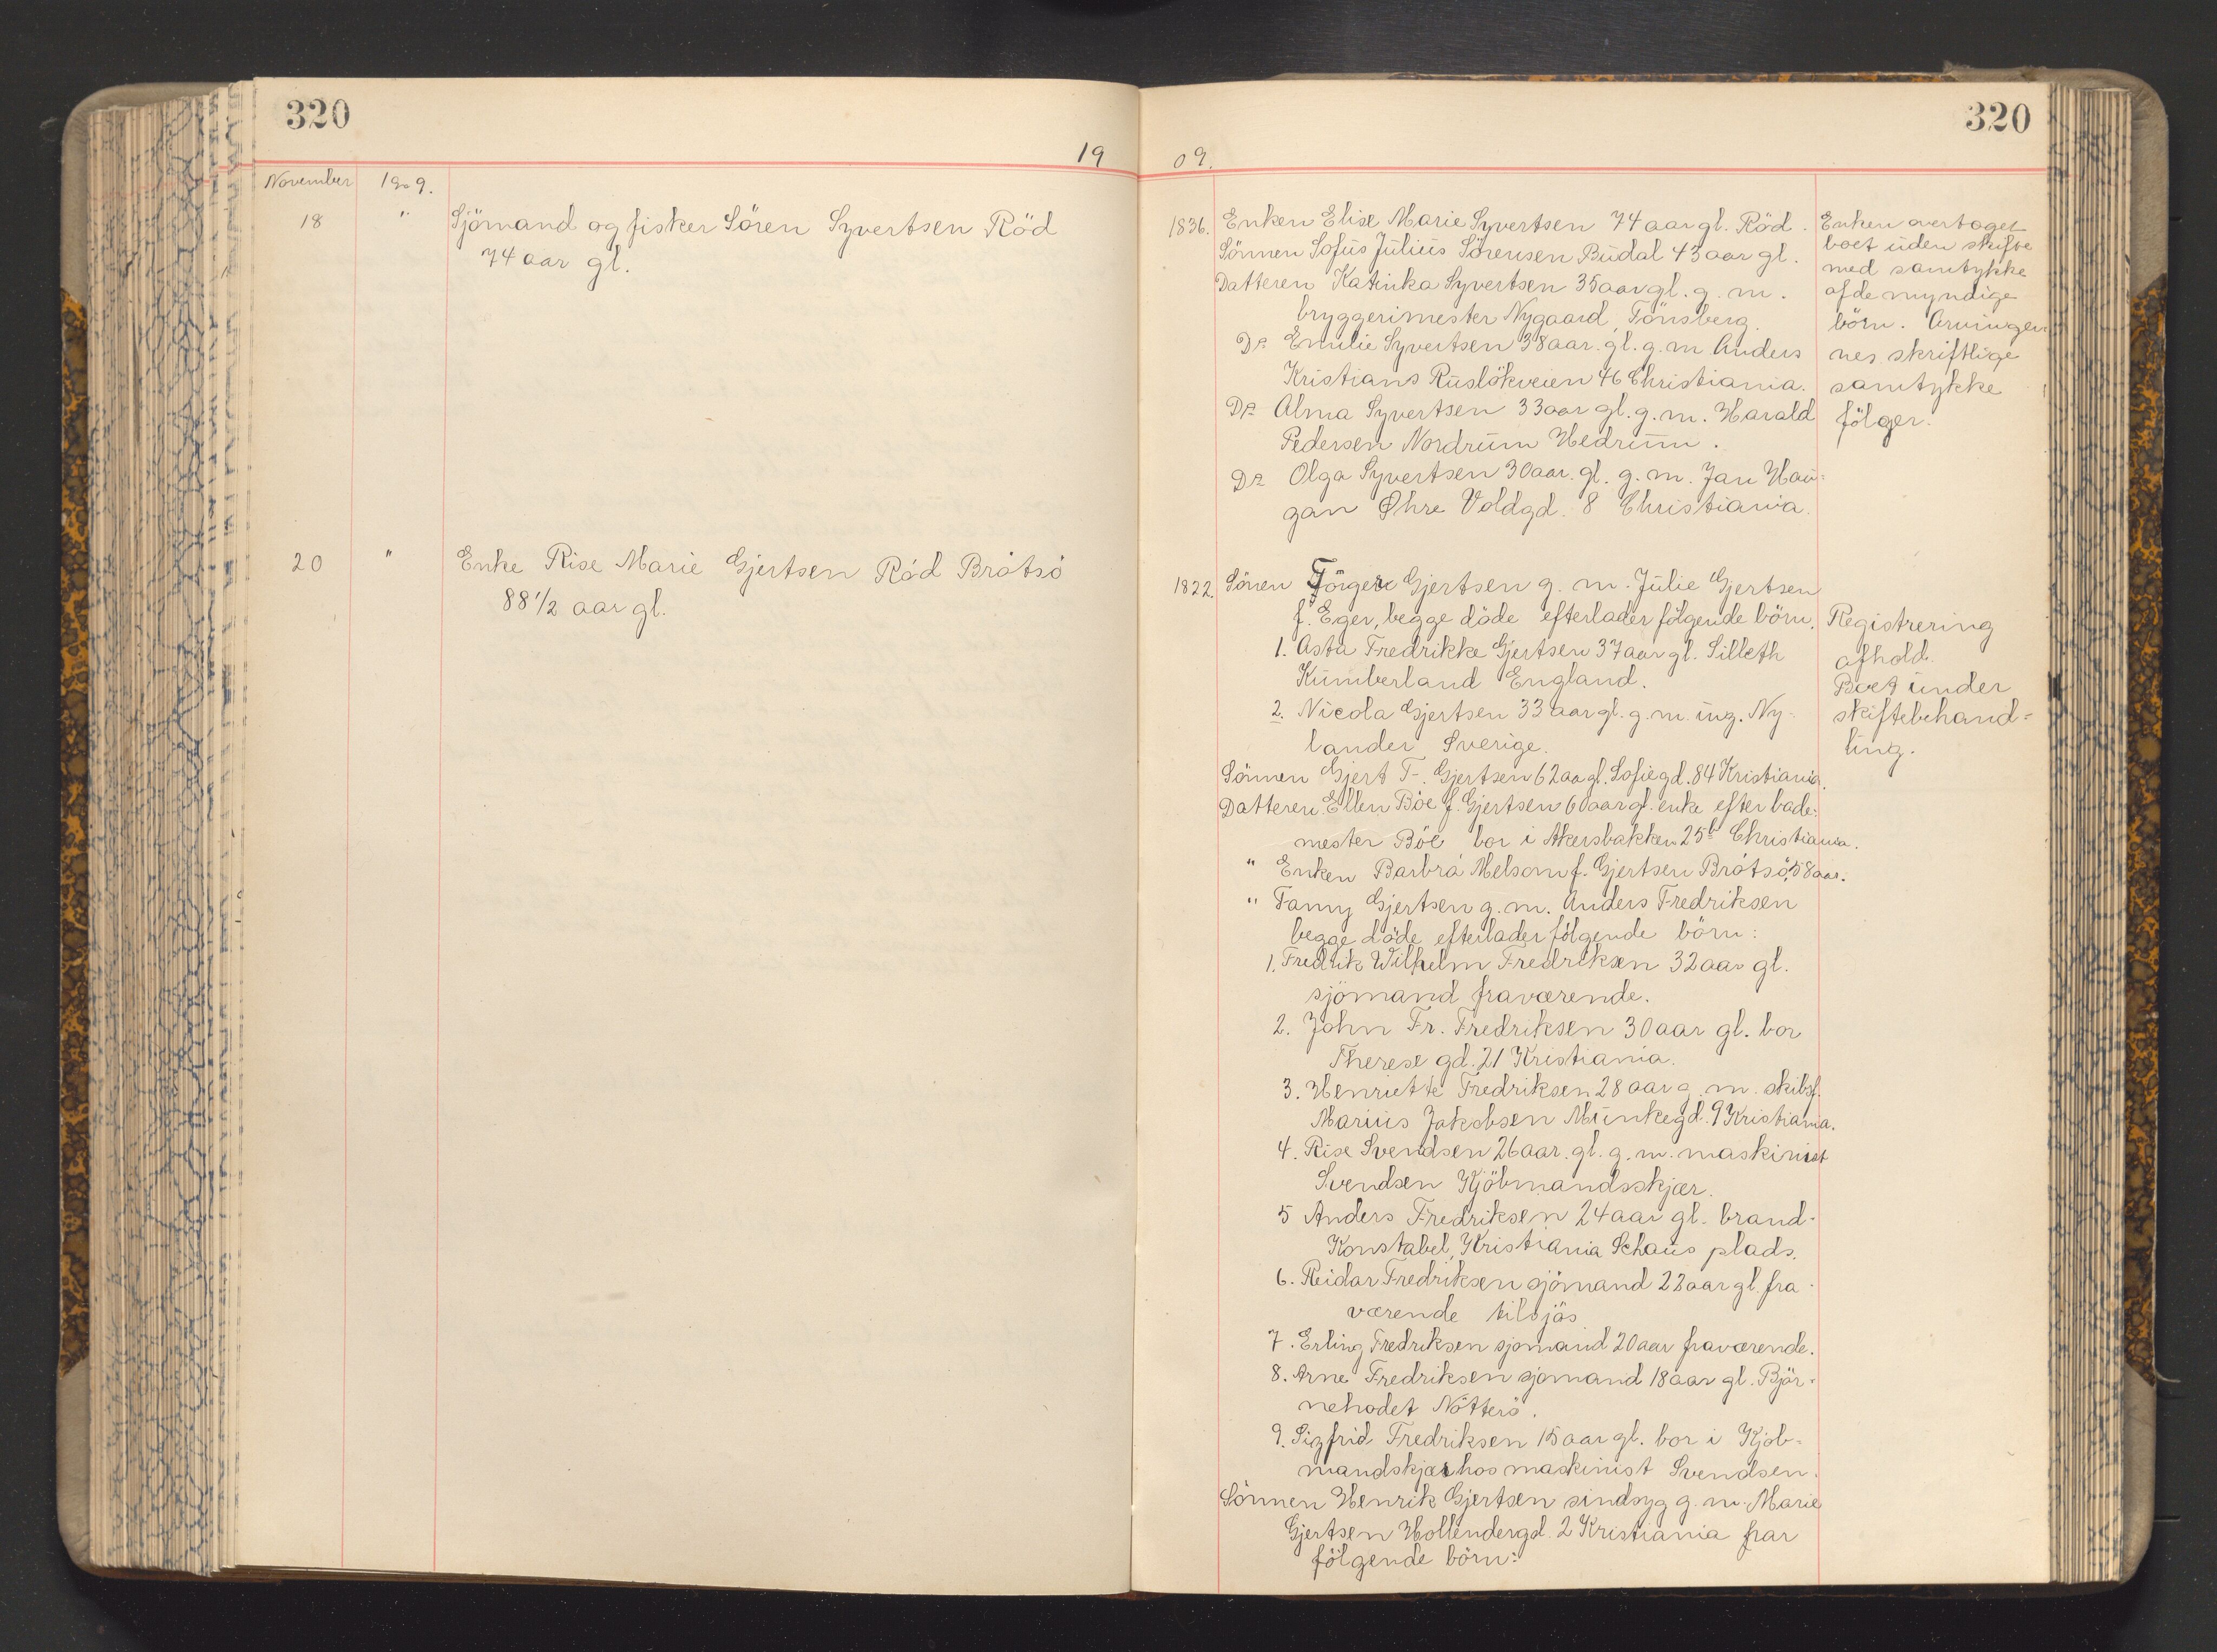 320
19
November 1909.
18 " Sjömand og fisker Sören Syvertsen Röd
74 aar gl.
20 " Enke Rise Marie Gjertsen Röd Bråtsö
88 1/2 aar gl.
320
09.
1836. Enken Elise Marie Syvertsen 74 aar gl. Röd.
Sönnen Sofus Julius Sörensen Budal 43 aar gl.
Datteren Katinka Syvertsen 35 aar gl. g. m.
bryggerimester Nygaard, Tönsberg.
Do Emilie Syvertsen 38 aar. gl. g. m. Anders
Kristians Ruslökveien 46 Christiania.
Do Alma Syvertsen 33 aar gl. g. m. Harald
Pedersen Nordrum Hedrum.
Do Olga Syvertsen 30 aar. gl. g. m. Jan Hau-
gan Øhre Voldgd. 8 Christiania.
Enken overtaget
boet uden skifte
med samtykke
af de myndige
börn. Arvingen
nes skriftlige
samtykke
fölger.
1822. Sönen Jörgen Gjertsen g. m. Julie Gjertsen
f. Eger, begge döde efterlader fölgende börn.
1. Asta Fredrikke Gjertsen 37 aar gl. Silleth
Kumberland England.
2. Nicola Gjertsen 33 aar gl. g. m. ing. Ny-
lander Sverige.
Sönnen Gjert T. Gjertsen 62 aa gl. Sofiegd. 84 Kristiania.
Datteren Ellen Böe f. Gjertsen 60 aar gl. enke efter bade-
mester Böe bor i Akersbakken 25b Christiania.
" Enken Barbra Melsom f. Gjertsen Bråtsö, 58 aar.
" Fanny Gjertsen g. m. Anders Fredriksen
begge döde efterlader fölgende börn:
1. Fredrik Wilhelm Fredriksen 32 aar gl.
sjömand fraværende.
2. John Fr. Fredriksen 30 aar gl. bor
Therese gd. 21 Kristiania.
3. Henriette Fredriksen 28 aar g. m. skibsf.
Marius Jakobsen Munkegd. 9 Kristiania.
4. Rise Svendsen 26 aar. gl. g. m. maskinist
Svendsen Kjöbmandsskjær.
5 Anders Fredriksen 24 aar gl. brand-
Konstabel, Kristiania Schaus plads.
6. Reidar Fredriksen sjömand 22 aar gl. fra-
værende tilsjös
7. Erling Fredriksen sjömand 20 aar fraværende.
8. Arne Fredriksen sjömand 18 aar gl. Björ-
nehodet Nötterö.
9. Sigfrid Fredriksen 15 aar gl. bor i Kjöb-
mandskjær hos maskinist Svendsen.
Sönnen Henrik Gjertsen sindsyg g. m. Marie
Gjertsen Hollendergd. 2 Kristiania har
fölgende börn:
Registrering
afhold.
Boet under
skiftebehand-
ling.